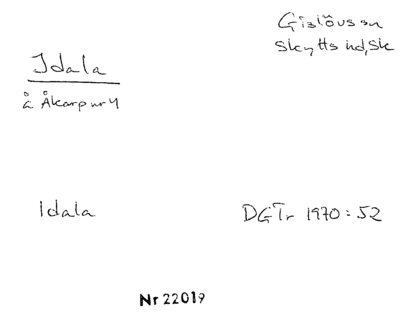 Gislövs sn
Skytts hd, Sk
Idala
å Åkarp nr 4
Idala
DGTr 1970:52
Nr 22019